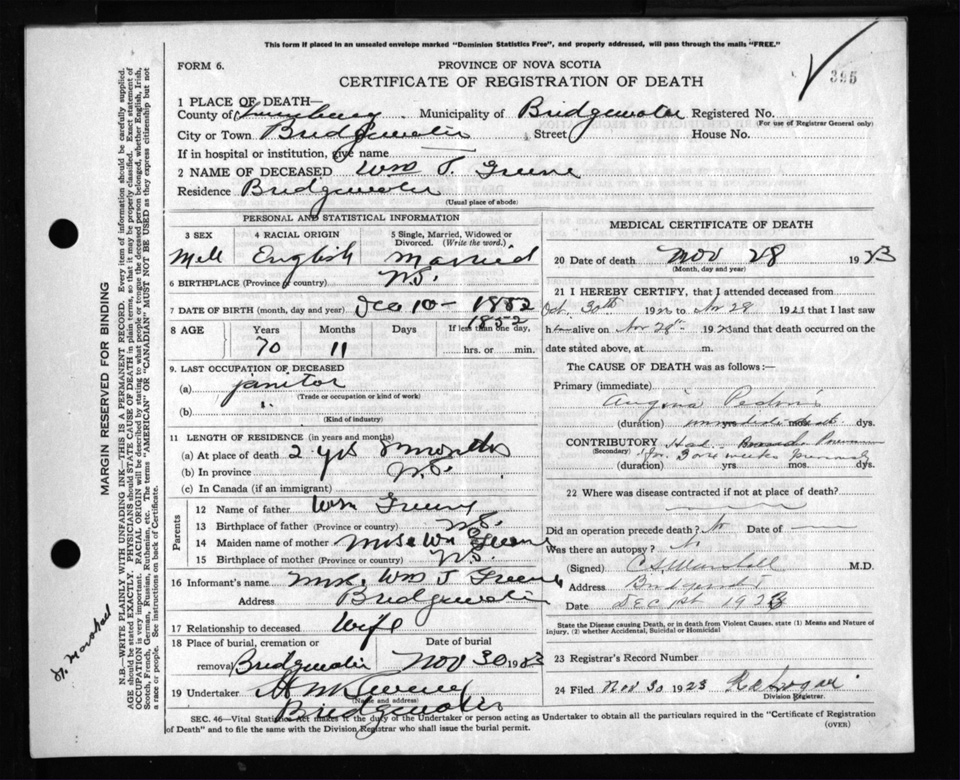 This form if placed in an unsealed envelope marked "Dominion Statistics Free", and properly addressed, will pass through the mails "FREE."
FORM 6.
PROVINCE OF NOVA SCOTIA
395
CERTIFICATE OF REGISTRATION OF DEATH
1 PLACE OF DEATH—
County of Lunenburg Municipality of Bridgewater Registered No.
(For use of Registrar General only)
City or Town Bridgewater Street House No.
If in hospital or institution, give name
2 NAME OF DECEASED Wm J. Greene
Residence Bridgewater
(Usual place of abode)
PERSONAL AND STATISTICAL INFORMATION
3 SEX 4 RACIAL ORIGIN 5 Single, Married, Widowed or Divorced. (Write the word.)
Mell English Married
6 BIRTHPLACE (Province or country) N.S.
7 DATE OF BIRTH (month, day and year) Dec 10 - 1852
1852
8 AGE Years Months Days If less than one day,
70 11 hrs. or min.
9. LAST OCCUPATION OF DECEASED
(a) janitor
(Trade or occupation or kind of work)
(b)
(Kind of industry)
11 LENGTH OF RESIDENCE (in years and months)
(a) At place of death 2 yrs 8 months
(b) In province N.S.
(c) In Canada (if an immigrant)
Parents
12 Name of father Wm Greene
13 Birthplace of father (Province or country) N.S.
14 Maiden name of mother Mrs Wm Greene
15 Birthplace of mother (Province or country) N.S.
16 Informant's name Mrs. Wm J Greene
Address Bridgewater
17 Relationship to deceased Wife
18 Place of burial, cremation or removal Bridgewater Date of burial Nov 30 1923
19 Undertaker
(Name and address)
Bridgewater
MEDICAL CERTIFICATE OF DEATH
20 Date of death Nov 28 1923
(Month, day and year)
21 I HEREBY CERTIFY, that I attended deceased from
Oct. 30th 192 to Nov 28 1923 that I last saw
h alive on Nov 28th 1923 and that death occurred on the
date stated above, at m.
The CAUSE OF DEATH was as follows :—
Primary (immediate)
Angina Pectoris
(duration) yrs. mos. dys.
CONTRIBUTORY Had
(Secondary) for 3 or 4 weeks previously
(duration) yrs. mos. dys.
22 Where was disease contracted if not at place of death?
Did an operation precede death? No Date of
Was there an autopsy?
(Signed) C S Marshall M.D.
Address
Date Dec 1st 1923
State the Disease causing Death, or in death from Violent Causes, state (1) Means and Nature of Injury, (2) whether Accidental, Suicidal or Homicidal
23 Registrar's Record Number
24 Filed Nov 30 1923
Division Registrar.
SEC. 46—Vital Statistics Act makes it the duty of the Undertaker or person acting as Undertaker to obtain all the particulars required in the "Certificate of Registration of Death" and to file the same with the Division Registrar who shall issue the burial permit.
(OVER)
MARGIN RESERVED FOR BINDING
N.B.—WRITE PLAINLY WITH UNFADING INK—THIS IS A PERMANENT RECORD. Every item of information should be carefully supplied.
AGE should be stated EXACTLY. PHYSICIANS should STATE CAUSE OF DEATH in plain terms, so that it may be properly classified. Exact statement of
OCCUPATION is very important. RACIAL ORIGIN will be described by stating to what people or tongue the deceased person belonged, whether English, Irish,
Scotch, French, German, Russian, Ruthenian, etc. The terms "AMERICAN" OR "CANADIAN" MUST NOT BE USED as they express citizenship but not
a race or people. See instructions on back of Certificate.
Marshall